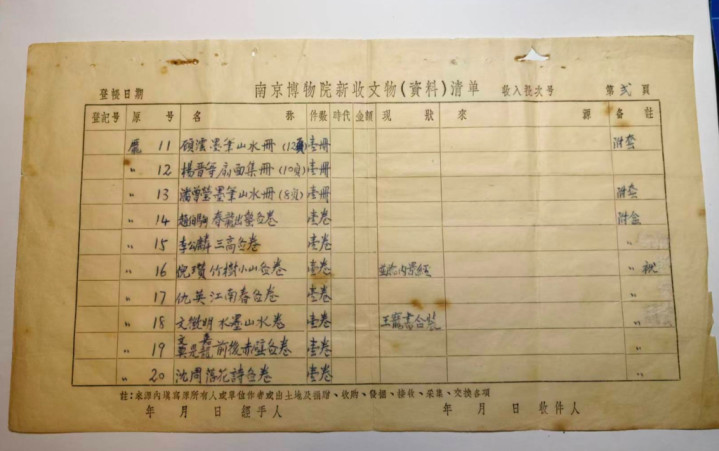 南京博物院新收文物(資料)清单
登記日期 收入批次号 第 弍 頁
登記号 原号 名称 件数 時代 金額 現狀 來源 备註
龐 11 顧澐墨筆山水冊 (12頁) 壹冊 附套
〃 12 楊晋等扇面集冊 (10頁) 壹冊
〃 13 潘曾瑩墨筆山水冊 (8頁) 壹冊 附套
〃 14 趙伯駒 春龍出蟄 卷 壹卷 附盒
〃 15 李公麟 三高 卷 壹卷 〃
〃 16 倪瓚 竹樹小山 卷 壹卷 〃
〃 17 仇英 江南春 卷 壹卷 〃
〃 18 文徵明 水墨山水卷 壹卷 王寵書合裝 〃
〃 19 前後赤壁 卷 壹卷 〃
〃 20 沈周 落花詩 卷 壹卷 〃
註:來源內填寫原所有人或單位作者或出土地及捐贈、收購、發掘、接收、采集、交換各項
年 月 日 經手人 年 月 日 收件人